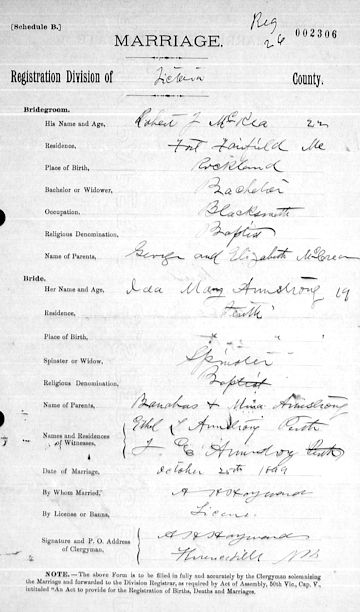 [Schedule B.]
Reg
26
002306
MARRIAGE.
Registration Division of Victoria County.
Bridegroom.
His Name and Age, Robert 22
Residence, Fort Fairfield Me
Place of Birth, Rockland
Bachelor or Widower, Bachelor
Occupation, Blacksmith
Religious Denomination, Baptist
Name of Parents, George and Elizabeth McCrea
Bride.
Her Name and Age, Ida Mary Armstrong 19
Residence, Perth
Place of Birth, " "
Spinster or Widow, Spinster
Religious Denomination, Baptist
Name of Parents, Banabas & Mina Armstrong
Names and Residences of Witnesses, Ethel L Armstrong Perth
Armstrong Perth
Date of Marriage, October 25th
By Whom Married, A H Hayward
By License or Banns, License
Signature and P. O. Address of Clergyman, A H Hayward
Florenceville N B
NOTE.—The above Form is to be filled in fully and accurately by the Clergyman solemnizing
the Marriage and forwarded to the Division Registrar, as required by Act of Assembly, 50th Vic., Cap. V.,
intituled "An Act to provide for the Registration of Births, Deaths and Marriages.